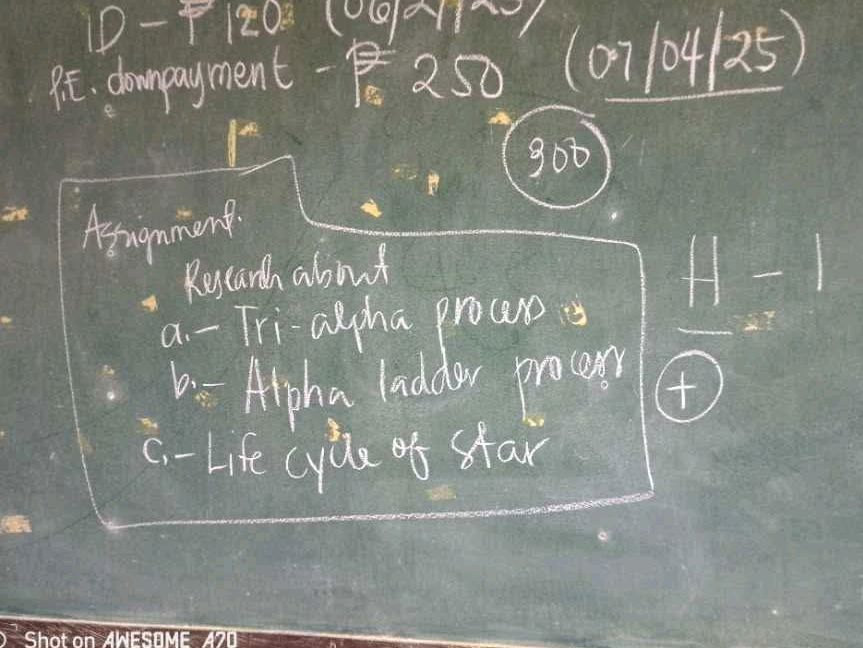 ID - ₱ 120 (06/21/25)
P.E. downpayment - ₱ 250 (07/04/25)
300
Assignment.
Research about
a.- Tri-alpha process
b.- Alpha ladder process
c.- Life cycle of star
H - 1
+
Shot on AWESOME A70